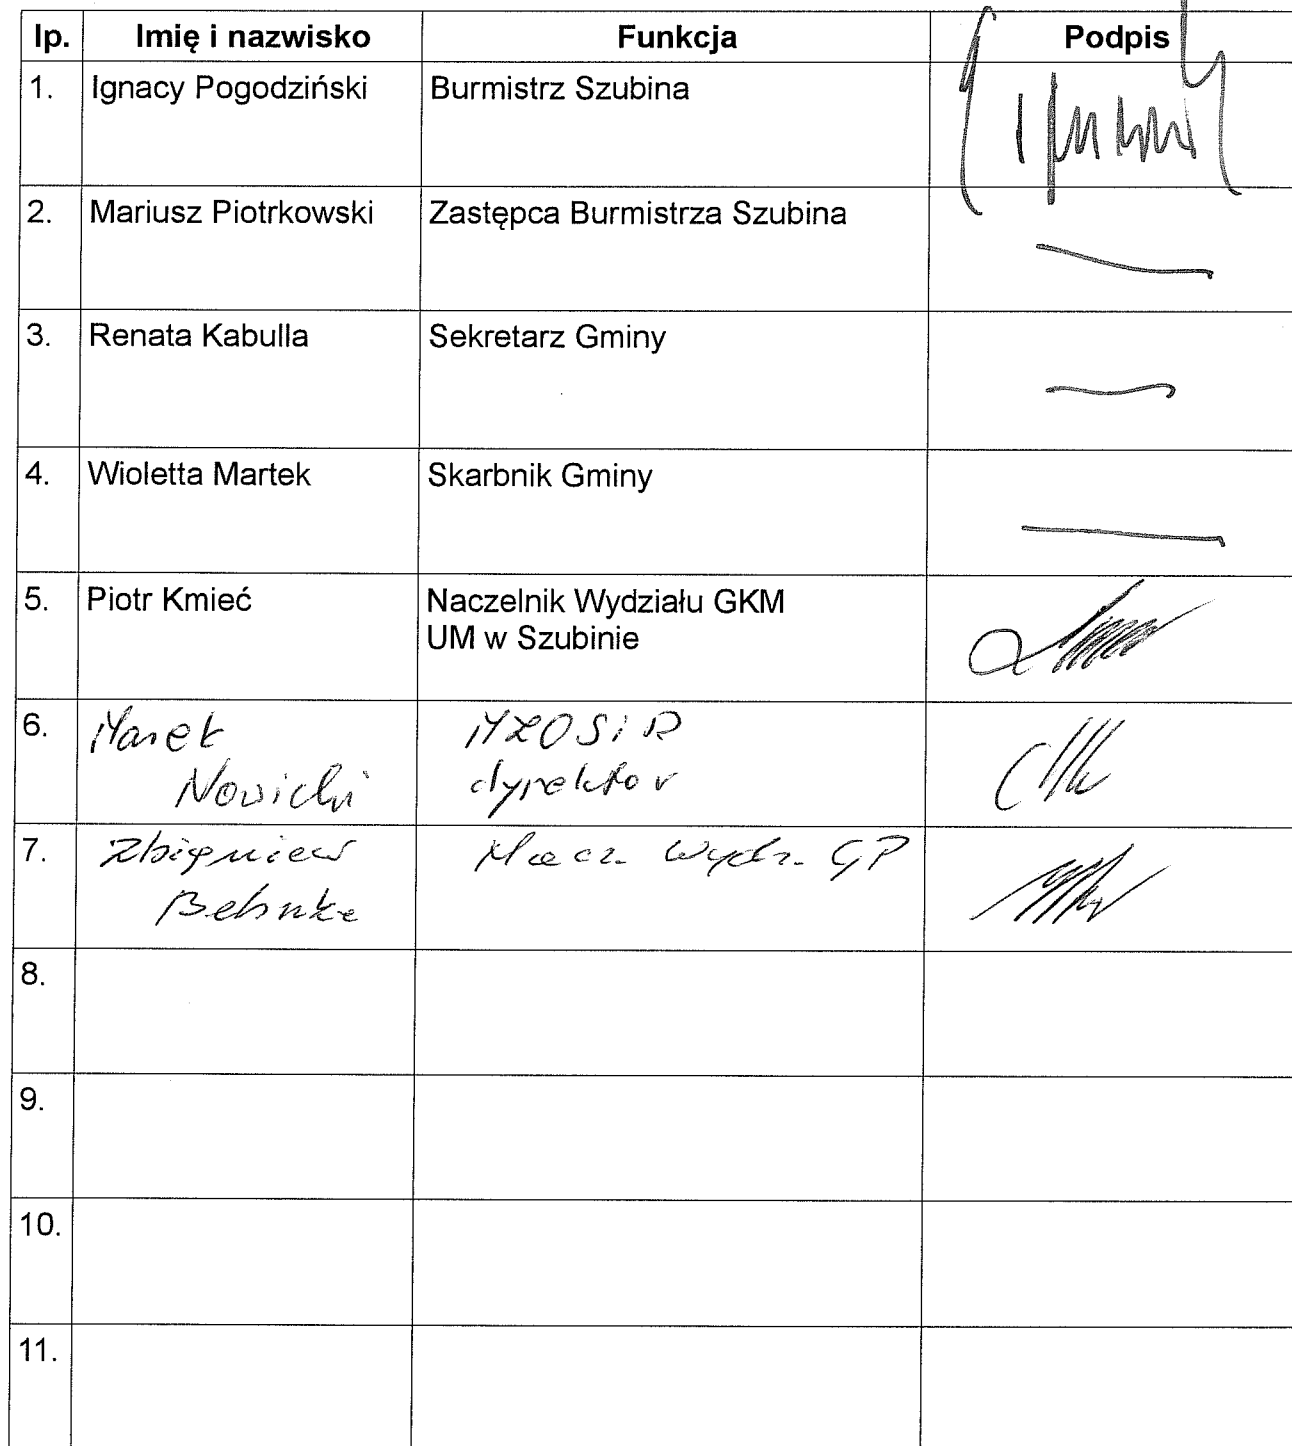 lp. Imię i nazwisko Funkcja Podpis
1. Ignacy Pogodziński Burmistrz Szubina
2. Mariusz Piotrkowski Zastępca Burmistrza Szubina
3. Renata Kabulla Sekretarz Gminy
4. Wioletta Martek Skarbnik Gminy
5. Piotr Kmieć Naczelnik Wydziału GKM
UM w Szubinie
6. Marek
Nowicki
dyrektor
7. Zbigniew Nacz. Wydz. GP
Behnke
8.
9.
10.
11.